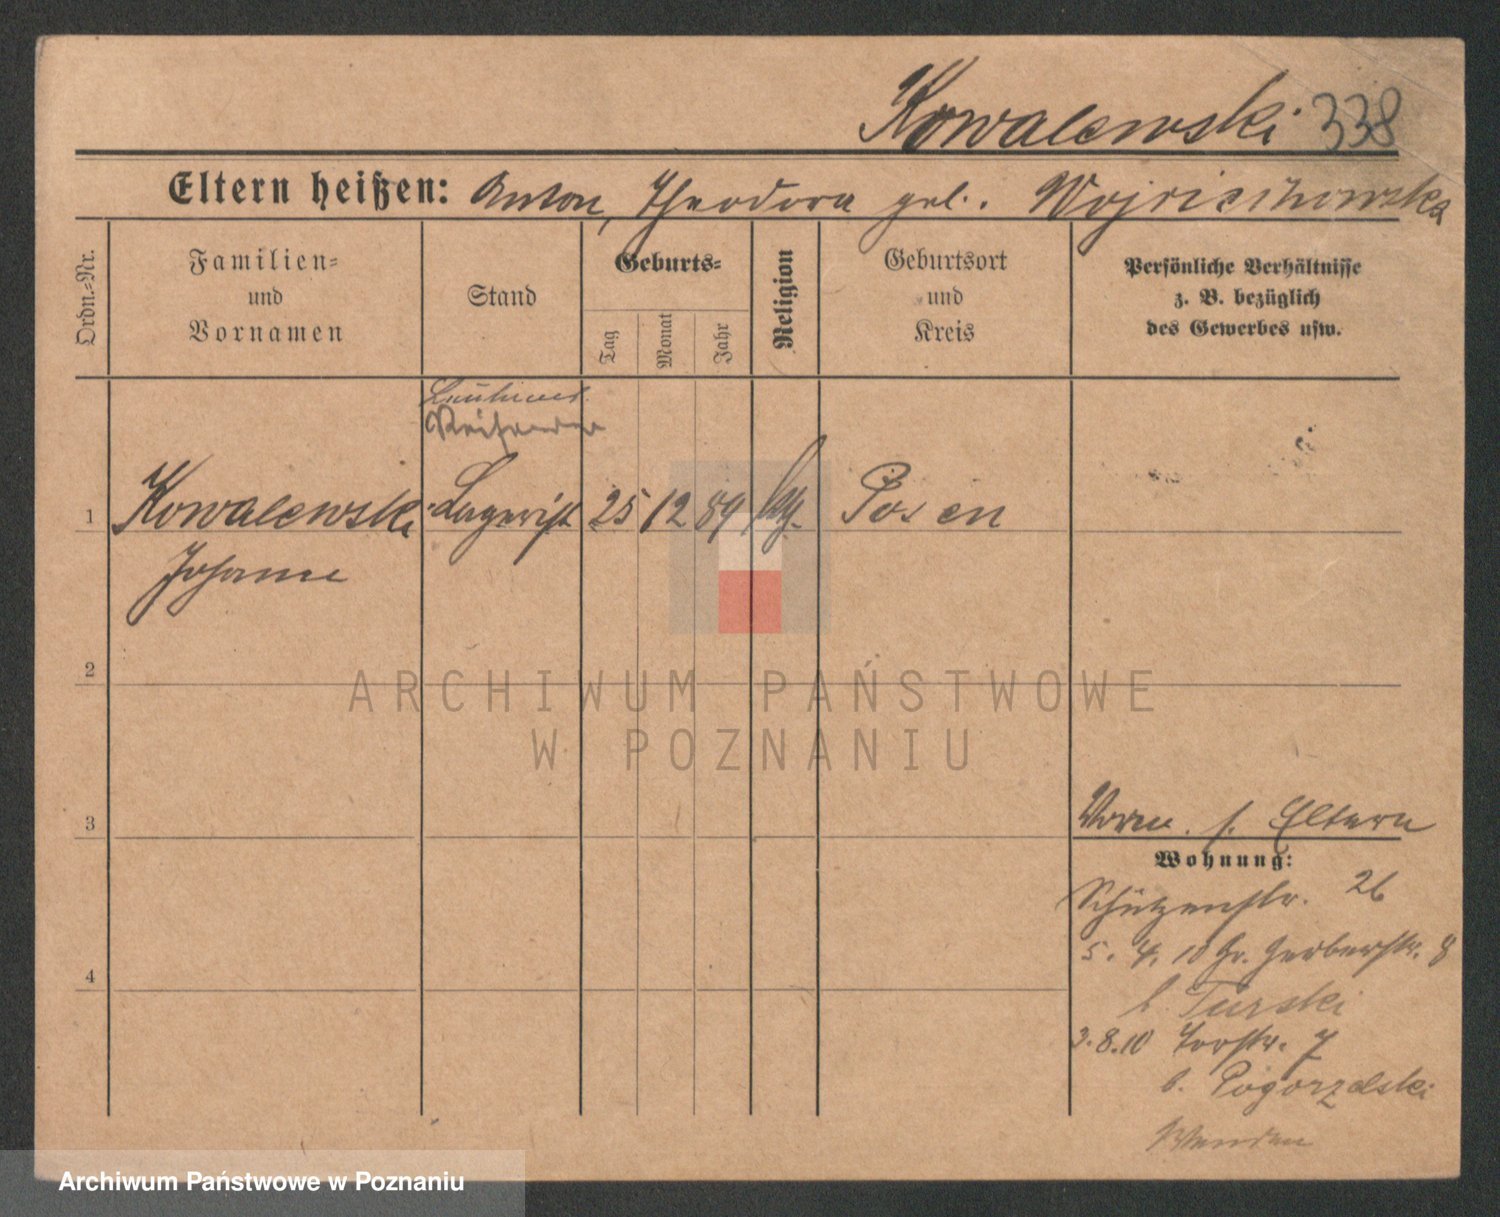 Kowalewski 338
Eltern heißen: Anton, Theodora geb.
Ordn.=Nr.
Familien=
und
Vornamen
Stand
Geburts=
Tag
Monat
Jahr
Religion
Geburtsort
und
Kreis
Persönliche Verhältnisse
z. B. bezüglich
des Gewerbes usw.
1 Kowalewski Lagerist 25 12 89 Posen
2
3
4
Vorm. s. Eltern
Wohnung:
Schützenstr. 26
5. 4. 10 Gr. Gerberstr. 8
b. Turski
3.8.10 Torstr. 7
b. Pogorzelski
ARCHIWUM PAŃSTWOWE
W POZNANIU
Archiwum Państwowe w Poznaniu